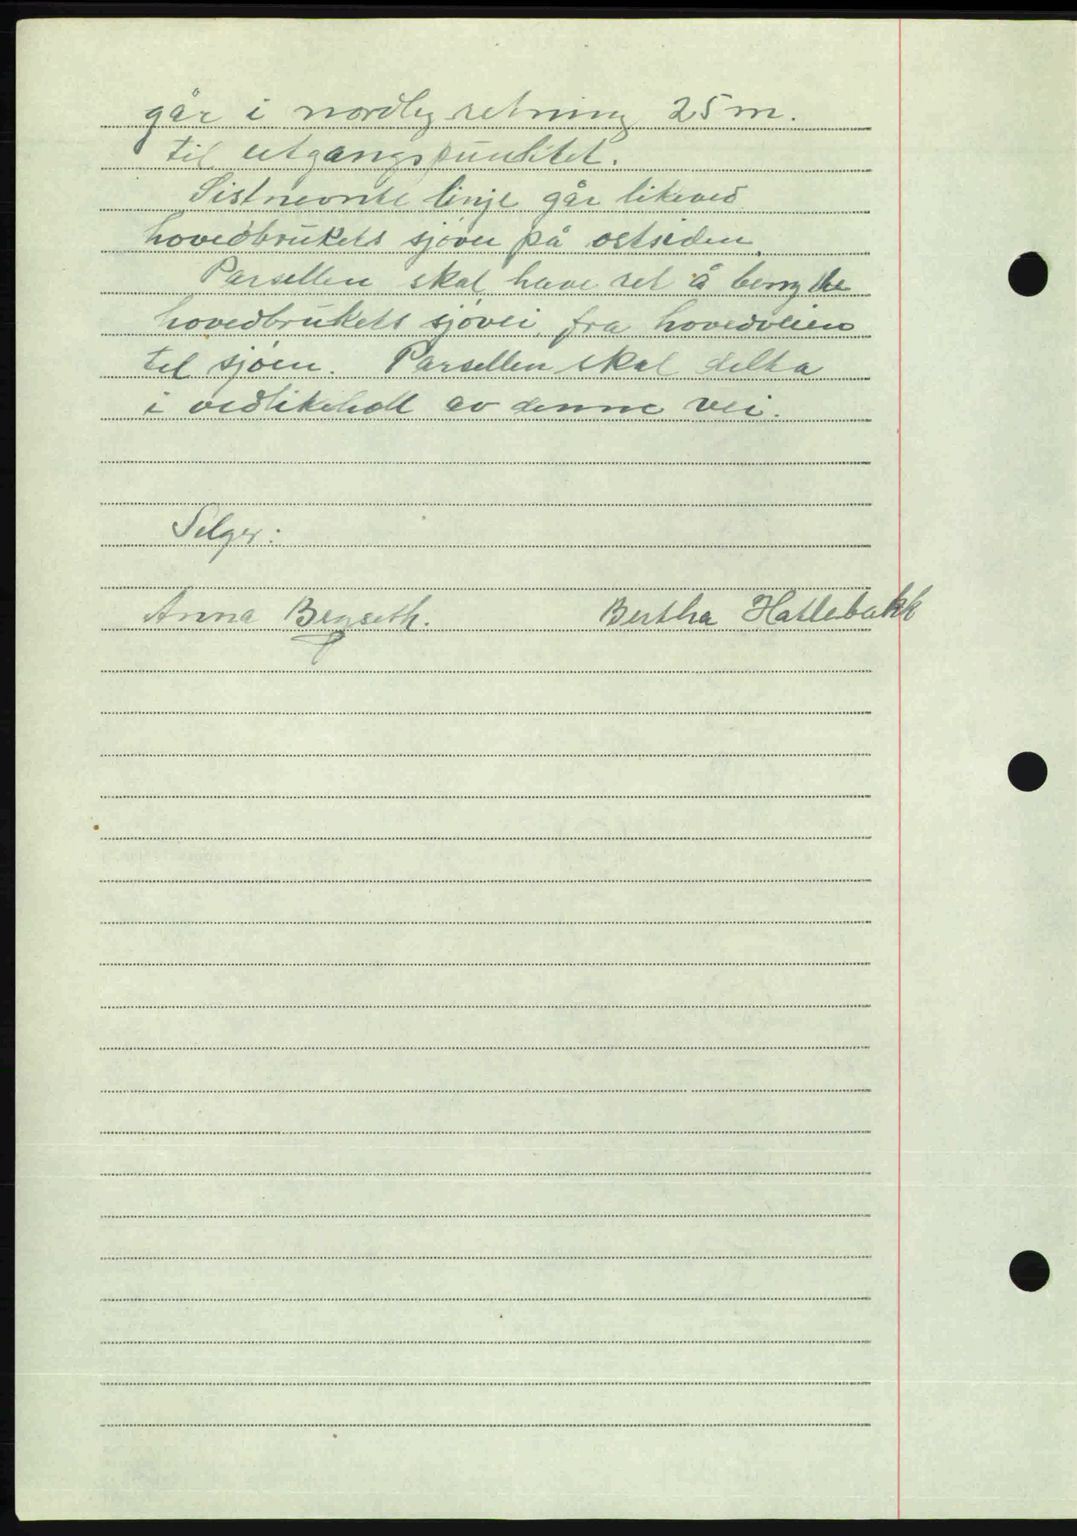 går i nordlig retning 25 m.
til utgangspunktet.
Sistnevnte linje går likeved
hovedbrukets sjøvei på østsiden.
Parsellen skal have ret å benytte
hovedbrukets sjøvei fra hovedveien
til sjøen. Parsellen skal delta
i vedlikehold av denne vei.
Selger:
Anna Bergseth. Bertha Hatlebakk